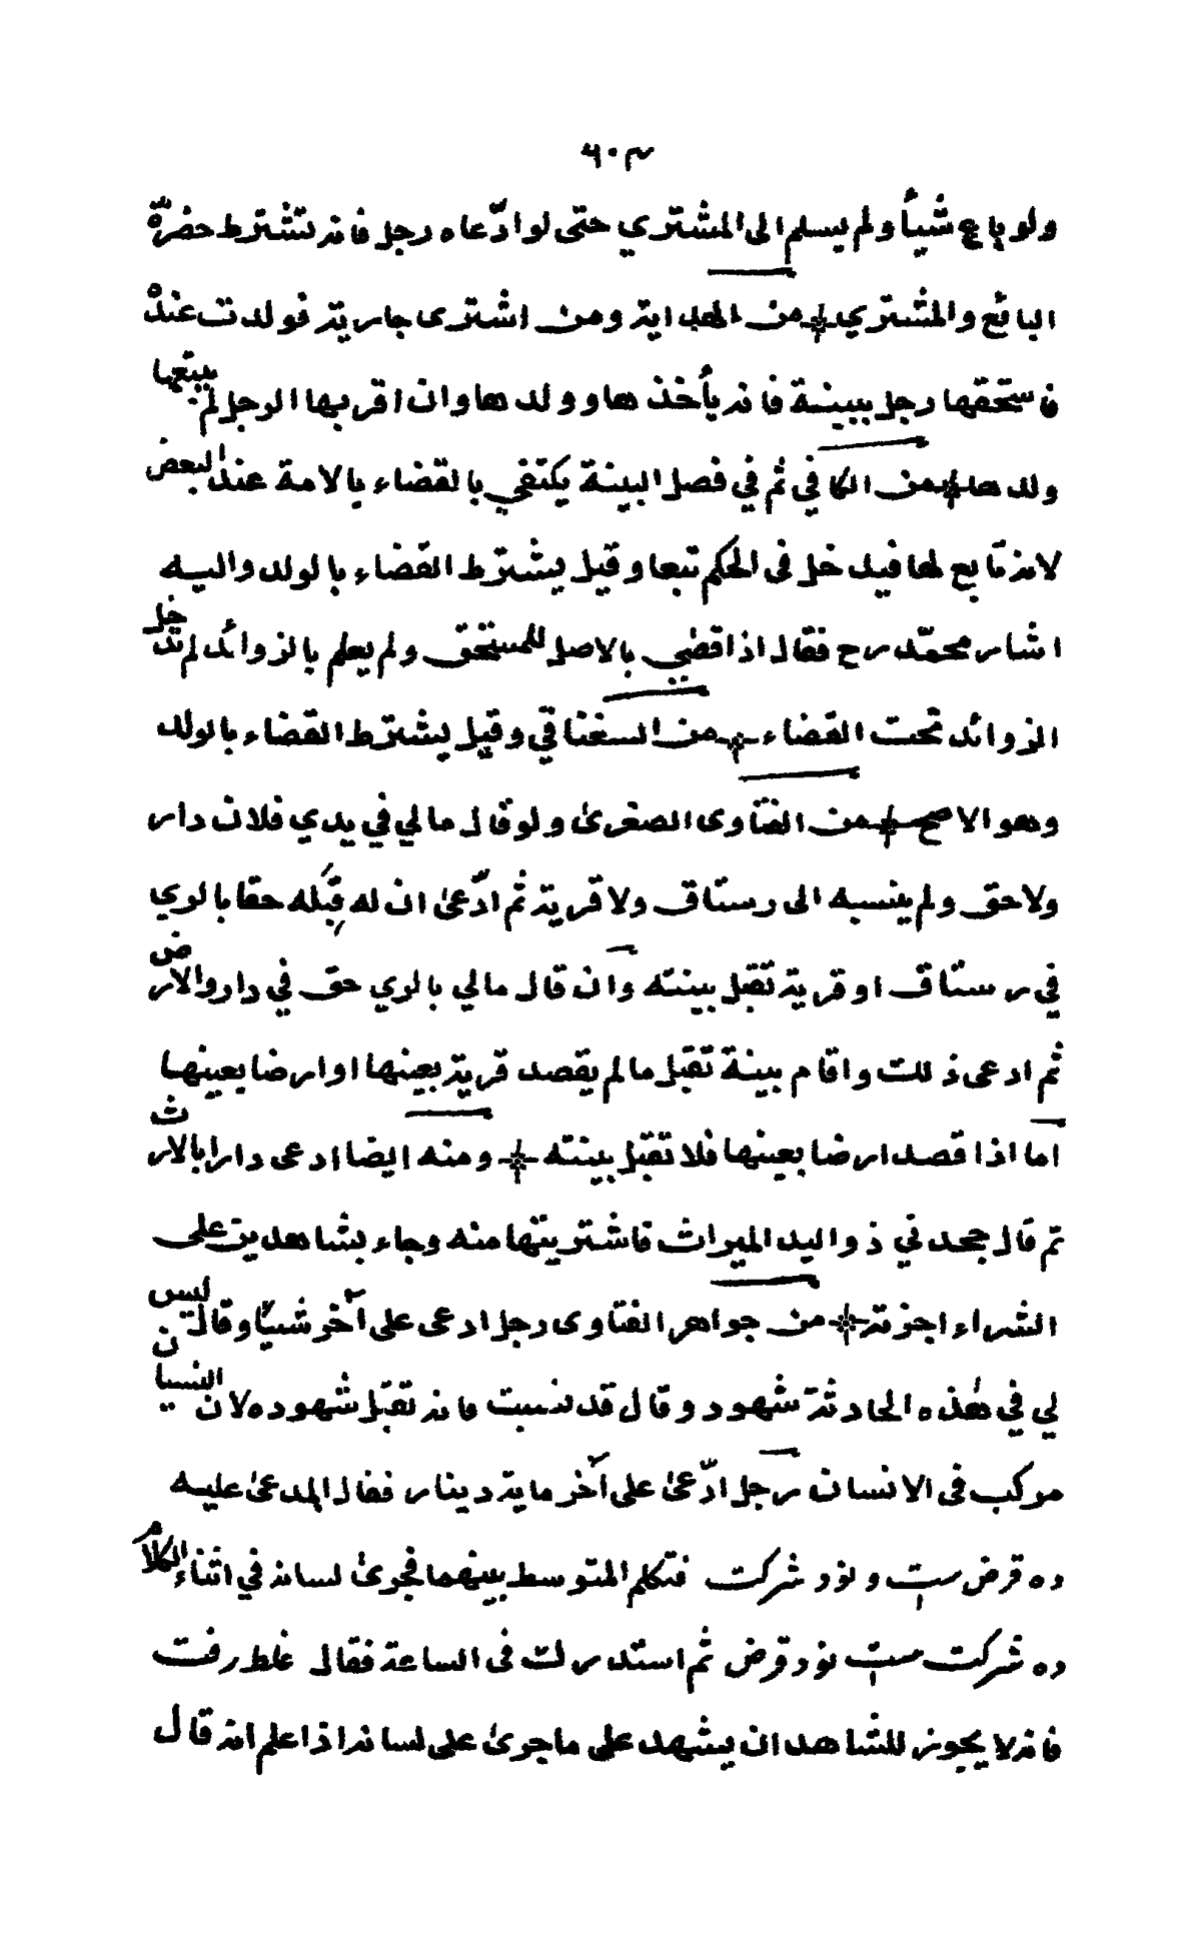 ٦٠٣
ولو باع شيأ ولم يسلم الى المشتري حتى لو ادّعاه رجل فانه تشترط حضرة
البائع والمشتري من الهداية ومن اشترى جارية فولدت عنده
فاستحقها رجل ببينة فانه يأخذها وولدها وان اقر بها الرجل لم يتبعها
ولدها من الكافي ثم في فصل البينة يكتفي بالقضاء بالامة عند البعض
لانه تابع لها فيدخل فى الحكم تبعا وقيل يشترط القضاء بالولد واليه
اشار محمّد رح فقال اذا قضي بالاصل للمستحق ولم يعلم بالزوائد لم تدخل
الزوائد تحت القضاء من السغناقي وقيل يشترط القضاء بالولد
وهو الاصح من الفتاوى الصغرىٰ ولو قال مالي في يدي فلان دار
ولا حق ولم ينسبه الى رستاق ولا قرية ثم ادّعىٰ ان له قِبَله حقا بالري
في رستاق او قرية تقبل بينته وان قال مالي بالري حق في دار والارض
ثم ادعى ذلك واقام بينة تقبل مالم يقصد قرية بعينها او ارضا بعينها
اما اذا قصد ارضا بعينها فلا تقبل بينته ومنه ايضا ادعى دارا بالارث
ثم قال جحدني ذو اليد الميراث فاشتريتها منه وجاء بشاهدين على
الشراء اجزته من جواهر الفتاوى رجل ادعى على آخر شيئا وقال ليس
لي في هذه الحادثة شهود وقال قد نسيت فانه تقبل شهوده لان النسيان
مركب فى الانسان رجل ادّعىٰ على آخر ماية دينار فقال المدعىٰ عليه
ده قرض ست ونود شركت فتكلم المتوسط بينهما فجرىٰ لسانه في اثناء الكلام
ده شركت ست نود قرض ثم استدرك فى الساعة فقال غلط رفت
فانه لا يجوز للشاهد ان يشهد على ماجرىٰ على لسانه اذا علم انه قال